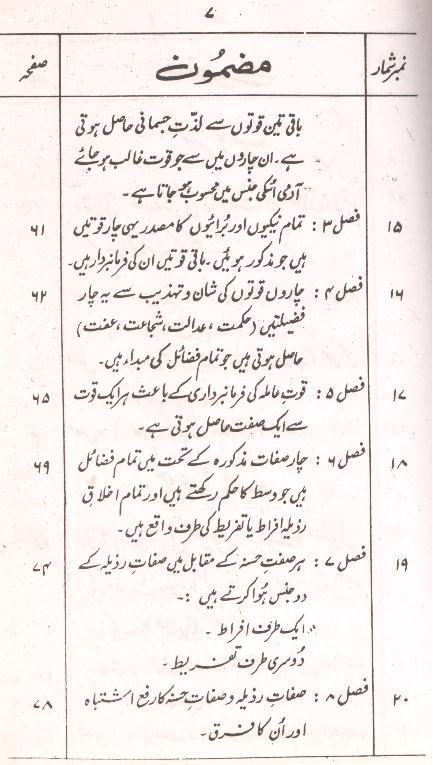 ۷
نمبرشمار مضمون صفحہ
باقی تین قوتوں سے لذتِ جسمانی حاصل ہوتی
ہے۔ ان چاروں میں سے جو قوت غالب ہو جائے
آدمی اسکی جنس میں محسوب ہو جاتا ہے۔
۱۵ فصل ۳: تمام نیکیوں اور برائیوں کا مصدر یہی چار قوتیں ۶۱
ہیں جو مذکور ہوئیں۔ باقی قوتیں ان کی فرمانبردار ہیں۔
۱۶ فصل ۴: چاروں قوتوں کی شان و تہذیب سے یہ چار ۶۲
فضیلتیں (حکمت، عدالت، شجاعت، عفت)
حاصل ہوتی ہیں جو تمام فضائل کی مبداء ہیں۔
۱۷ فصل ۵: قوتِ عاملہ کی فرمانبرداری کے باعث ہر ایک قوت ۶۵
سے ایک صفت حاصل ہوتی ہے۔
۱۸ فصل ۶: چار صفات مذکورہ کے تحت میں تمام فضائل ۶۹
ہیں جو وسط کا حکم رکھتے ہیں اور تمام اخلاقِ
رذیلہ افراط یا تفریط کی طرف واقع ہیں۔
۱۹ فصل ۷: ہر صفتِ حسنہ کے مقابل میں صفاتِ رذیلہ کے ۷۴
دو جنس ہُوا کرتے ہیں :۔
ایک طرف افراط۔
دُوسری طرف تفریط۔
۲۰ فصل ۸: صفاتِ رذیلہ و صفاتِ حسنہ کا رفع اشتباہ ۷۸
اور اُن کا فرق۔